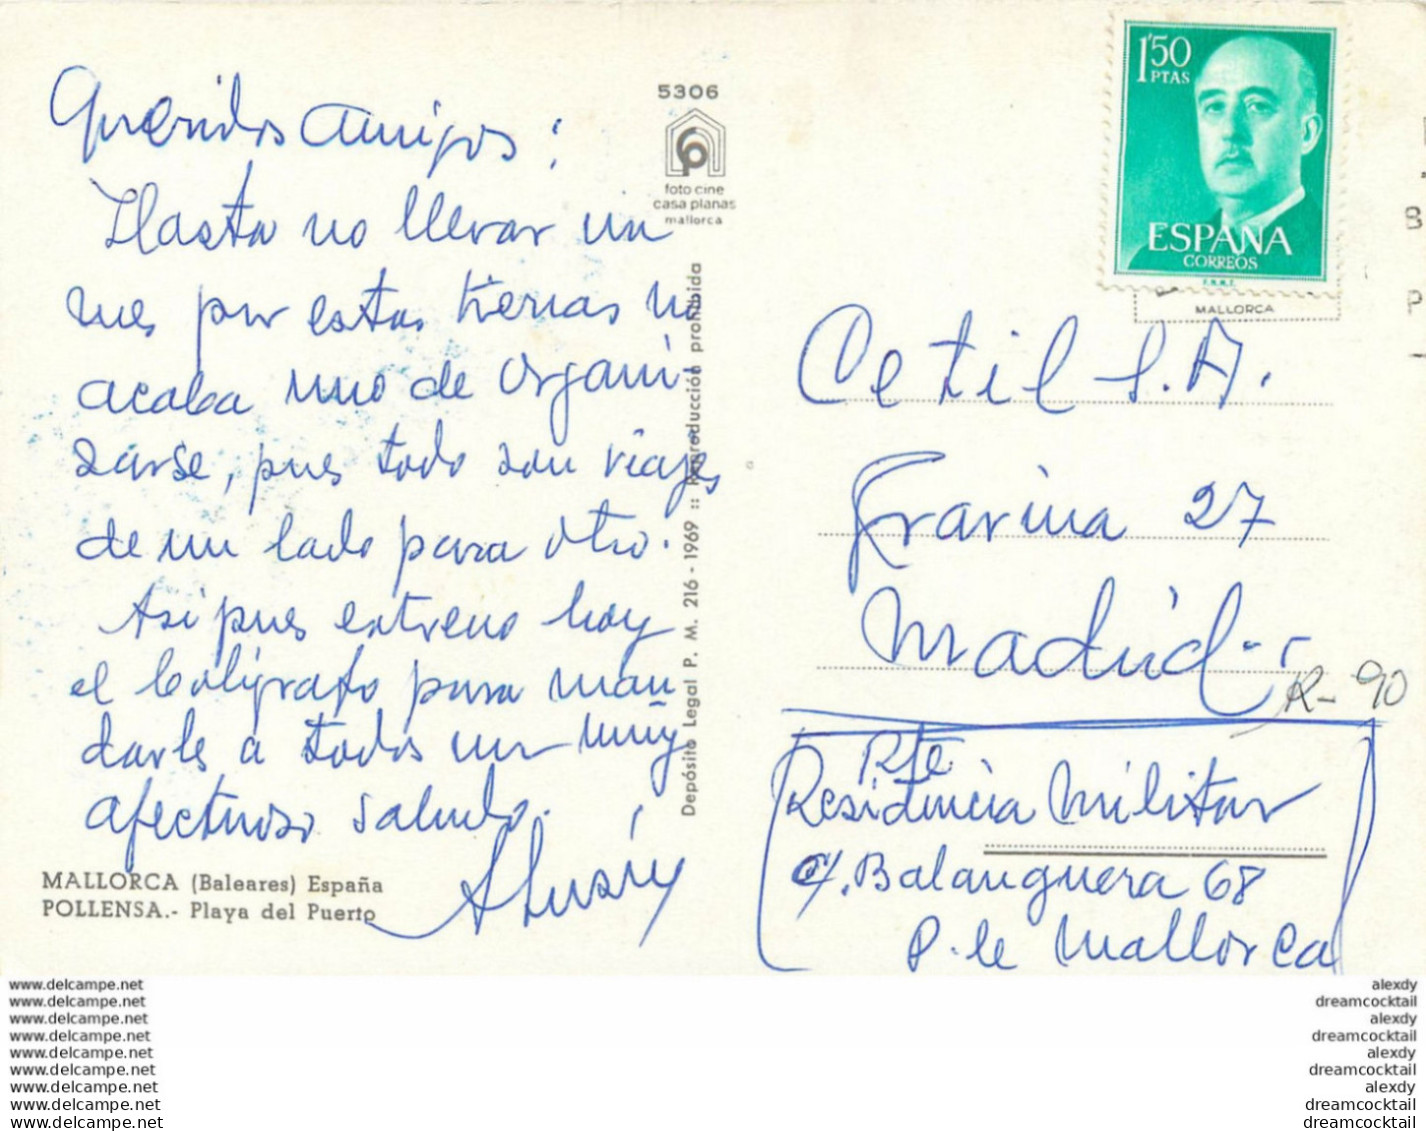 Queridos amigos:
Hasta no llevar un
mes por estas tierras no
acaba uno de organi-
zarse, pues todo son viajes
de un lado para otro.
Asi pues estreno hoy
el bolígrafo para man
darles a todos un muy
afectuoso saludo.
MALLORCA (Baleares) España
POLLENSA.- Playa del Puerto
5306
foto cine
casa planas
mallorca
Depósito Legal P. M. 216 - 1969 :: Reproducción prohibida
1'50
PTAS
ESPAÑA
CORREOS
F.N.M.T.
MALLORCA
B
P
Cetil S.A.
Gravina 27
Madrid
R-90
Rte
Residencia Militar
c/. Balanguera 68
P. de Mallorca
www.delcampe.net
www.delcampe.net
www.delcampe.net
www.delcampe.net
www.delcampe.net
www.delcampe.net
www.delcampe.net
www.delcampe.net
www.delcampe.net
alexdy
dreamcocktail
alexdy
dreamcocktail
alexdy
dreamcocktail
alexdy
dreamcocktail
dreamcocktail